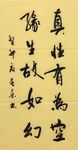 真性有為空
緣生故如幻